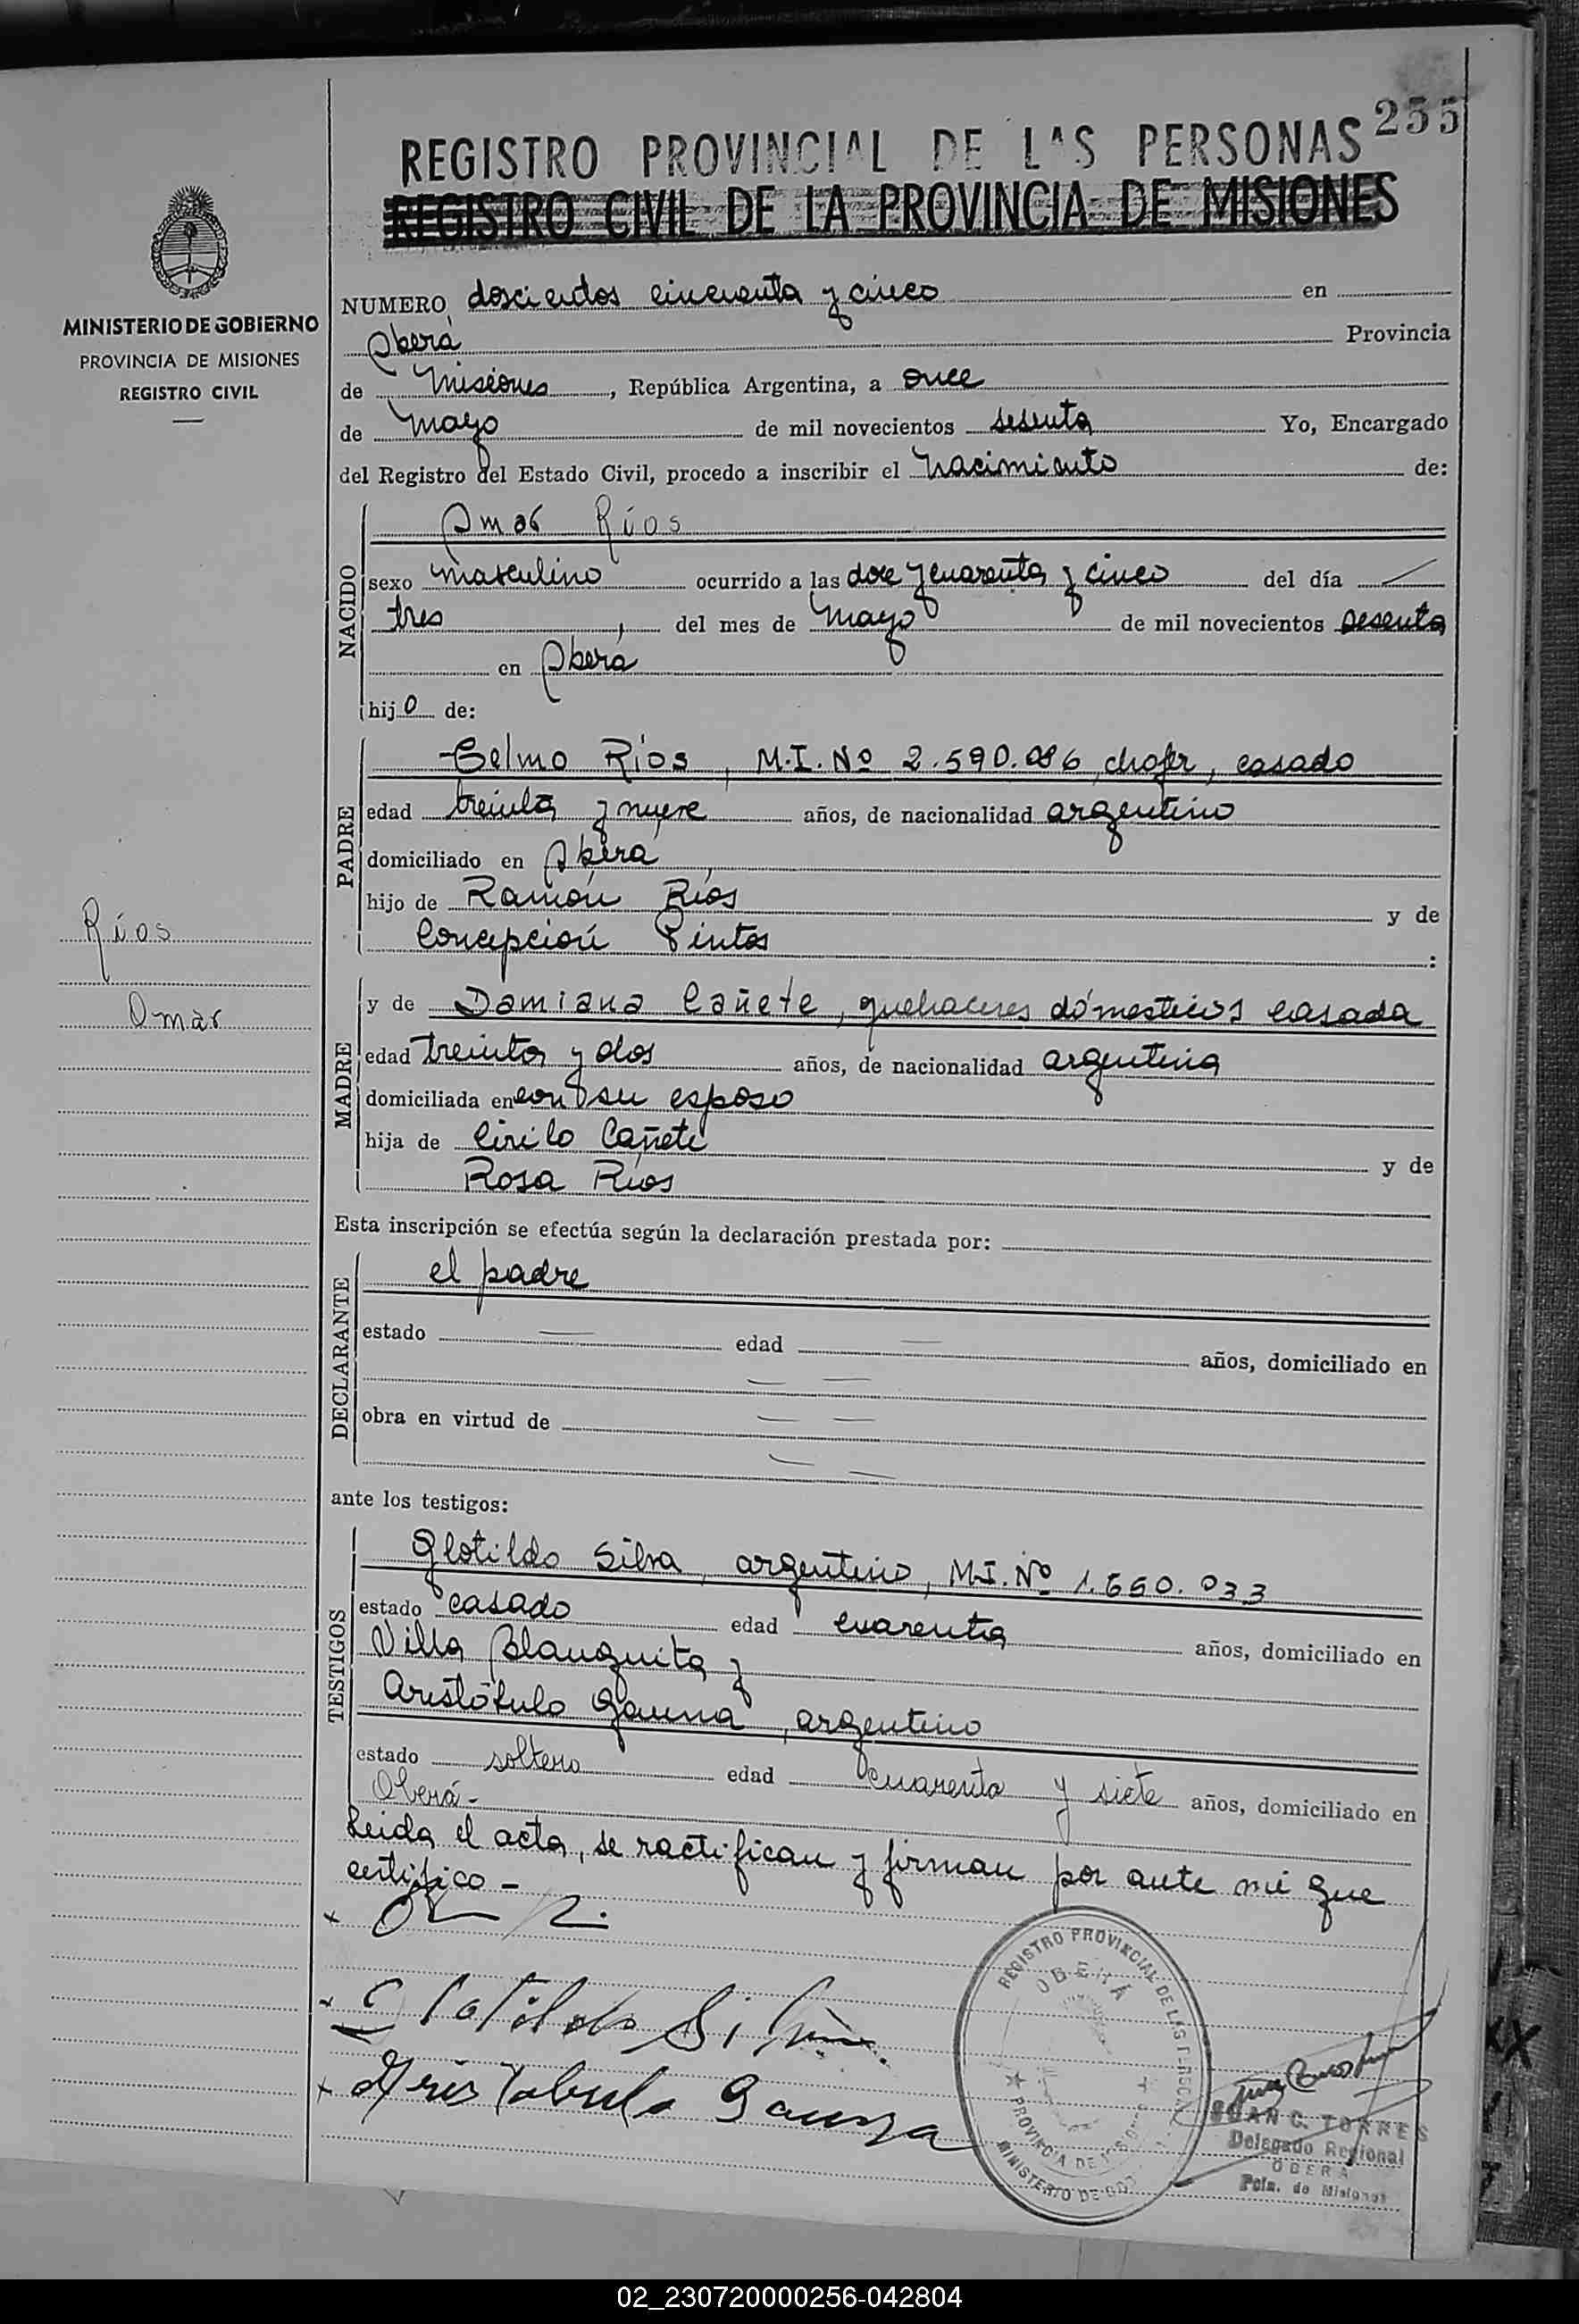 255
REGISTRO PROVINCIAL DE LAS PERSONAS
REGISTRO CIVIL DE LA PROVINCIA DE MISIONES
MINISTERIO DE GOBIERNO
PROVINCIA DE MISIONES
REGISTRO CIVIL
NUMERO doscientos cincuenta y cinco en
Oberá Provincia
de Misiones, República Argentina, a once
de Mayo de mil novecientos sesenta Yo, Encargado
del Registro del Estado Civil, procedo a inscribir el nacimiento de:
NACIDO
Omar Ríos
sexo masculino ocurrido a las doce y cuarenta y cinco del día
tres, del mes de Mayo de mil novecientos sesenta
en Oberá
hijo de:
PADRE
Celmo Ríos, M.I. Nº 2.590.086, chofer, casado
edad treinta y nueve años, de nacionalidad argentino
domiciliado en Oberá
hijo de Ramón Ríos y de
Concepción Pintos :
Ríos
Omar
MADRE
y de Damiana Cañete, quehaceres domesticos casada
edad treinta y dos años, de nacionalidad argentina
domiciliada en con su esposo
hija de Cirilo Cañete y de
Rosa Ríos
Esta inscripción se efectúa según la declaración prestada por:
DECLARANTE
el padre
estado — edad — años, domiciliado en
— —
obra en virtud de — —
— —
ante los testigos:
TESTIGOS
Clotildo Silva, argentino, M.I. Nº 1.650.033
estado casado edad cuarenta años, domiciliado en
Villa Blanquita y
Aristóbulo Gauna, argentino
estado soltero edad cuarenta y siete años, domiciliado en
Oberá.-
Leida el acta, se ractifican y firman por ante mí que
certifico -
Clotildo Silva
Aristobulo Gauna
REGISTRO PROVINCIAL DE LAS
OBERÁ
PROVINCIA DE MISIONES
MINISTERIO DE GOB
JUAN C. TORRES
Delegado Regional
OBERA
Pcia. de Misiones
02_230720000256-042804